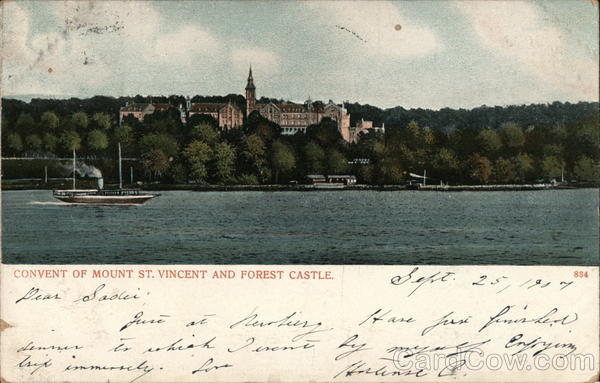 CONVENT OF MOUNT ST. VINCENT AND FOREST CASTLE. 834
Sept. 25, 1907
Dear Sadie;
Just at Newburg Have just finished
dinner to which I went by myself Enjoying
trip immensely. Love Hortense C.
CardCow.com